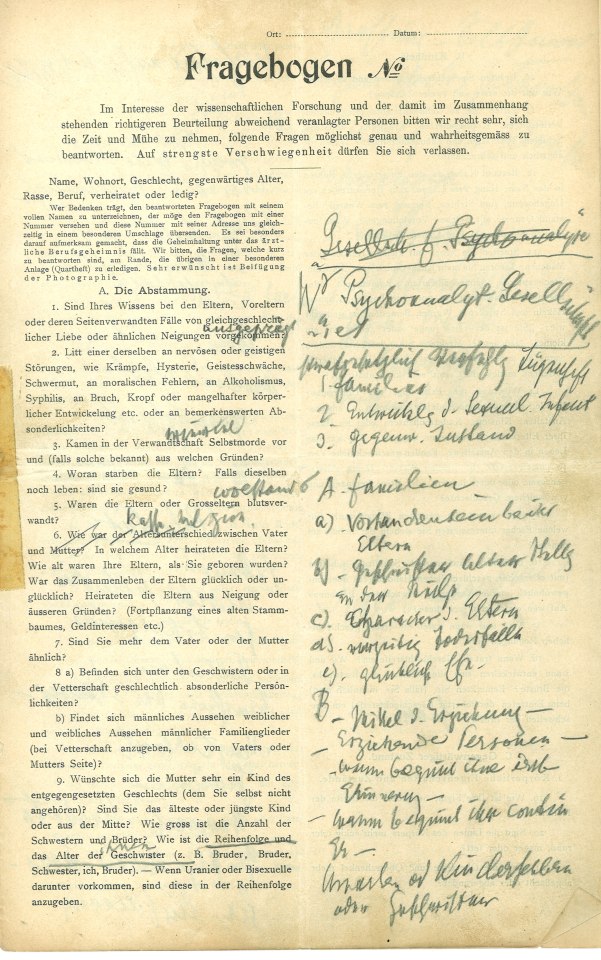 Ort: Datum:
Fragebogen No
Im Interesse der wissenschaftlichen Forschung und der damit im Zusammenhang
stehenden richtigeren Beurteilung abweichend veranlagter Personen bitten wir recht sehr, sich
die Zeit und Mühe zu nehmen, folgende Fragen möglichst genau und wahrheitsgemäss zu
beantworten. Auf strengste Verschwiegenheit dürfen Sie sich verlassen.
Name, Wohnort, Geschlecht, gegenwärtiges Alter,
Rasse, Beruf, verheiratet oder ledig?
Wer Bedenken trägt, den beantworteten Fragebogen mit seinem
vollen Namen zu unterzeichnen, der möge den Fragebogen mit einer
Nummer versehen und diese Nummer mit seiner Adresse uns gleich-
zeitig in einem besonderen Umschlage übersenden. Es sei besonders
darauf aufmerksam gemacht, dass die Geheimhaltung unter das ärzt-
liche Berufsgeheimnis fällt. Wir bitten, die Fragen, welche kurz
zu beantworten sind, am Rande, die übrigen in einer besonderen
Anlage (Quartheft) zu erledigen. Sehr erwünscht ist Beifügung
der Photographie.
A. Die Abstammung.
1. Sind Ihres Wissens bei den Eltern, Voreltern
oder deren Seitenverwandten Fälle von gleichgeschlecht-
licher Liebe oder ähnlichen Neigungen vorgekommen?
ausgeprägt
2. Litt einer derselben an nervösen oder geistigen
Störungen, wie Krämpfe, Hysterie, Geistesschwäche,
Schwermut, an moralischen Fehlern, an Alkoholismus,
Syphilis, an Bruch, Kropf oder mangelhafter körper-
licher Entwickelung etc. oder an bemerkenswerten Ab-
sonderlichkeiten?
3. Kamen in der Verwandtschaft Selbstmorde vor
und (falls solche bekannt) aus welchen Gründen?
4. Woran starben die Eltern? Falls dieselben
noch leben: sind sie gesund?
5. Waren die Eltern oder Grosseltern blutsver-
wandt?
6. Wie war der Altersunterschied zwischen Vater
und Mutter? In welchem Alter heirateten die Eltern?
Wie alt waren Ihre Eltern, als Sie geboren wurden?
War das Zusammenleben der Eltern glücklich oder un-
glücklich? Heirateten die Eltern aus Neigung oder
äusseren Gründen? (Fortpflanzung eines alten Stamm-
baumes, Geldinteressen etc.)
7. Sind Sie mehr dem Vater oder der Mutter
ähnlich?
8 a) Befinden sich unter den Geschwistern oder in
der Vetterschaft geschlechtlich absonderliche Persön-
lichkeiten?
b) Findet sich männliches Aussehen weiblicher
und weibliches Aussehen männlicher Familienglieder
(bei Vetterschaft anzugeben, ob von Vaters oder
Mutters Seite)?
9. Wünschte sich die Mutter sehr ein Kind des
entgegengesetzten Geschlechts (dem Sie selbst nicht
angehören)? Sind Sie das älteste oder jüngste Kind
oder aus der Mitte? Wie gross ist die Anzahl der
Schwestern und Brüder? Wie ist die Reihenfolge und
das Alter der Geschwister (z. B. Bruder, Bruder,
Schwester, ich, Bruder). — Wenn Uranier oder Bisexuelle
darunter vorkommen, sind diese in der Reihenfolge
anzugeben.
Gesellsch. f. Psychoanalyse
Psychoanalyt. Gesellschaft
1 familiär
2 Entwicklg d. Sexual.
3. gegenw. Zustand
A. familien
a) Vorhandensein beider
Eltern
b)
c). Character d. Eltern
d). vorzeitig Todesfälle
e). glückliche Ehe
B – Mittel d. Erziehung –
– Erziehende Personen –
– wann beginnt ihre
– wann beginnt ihre
oder Geschwister